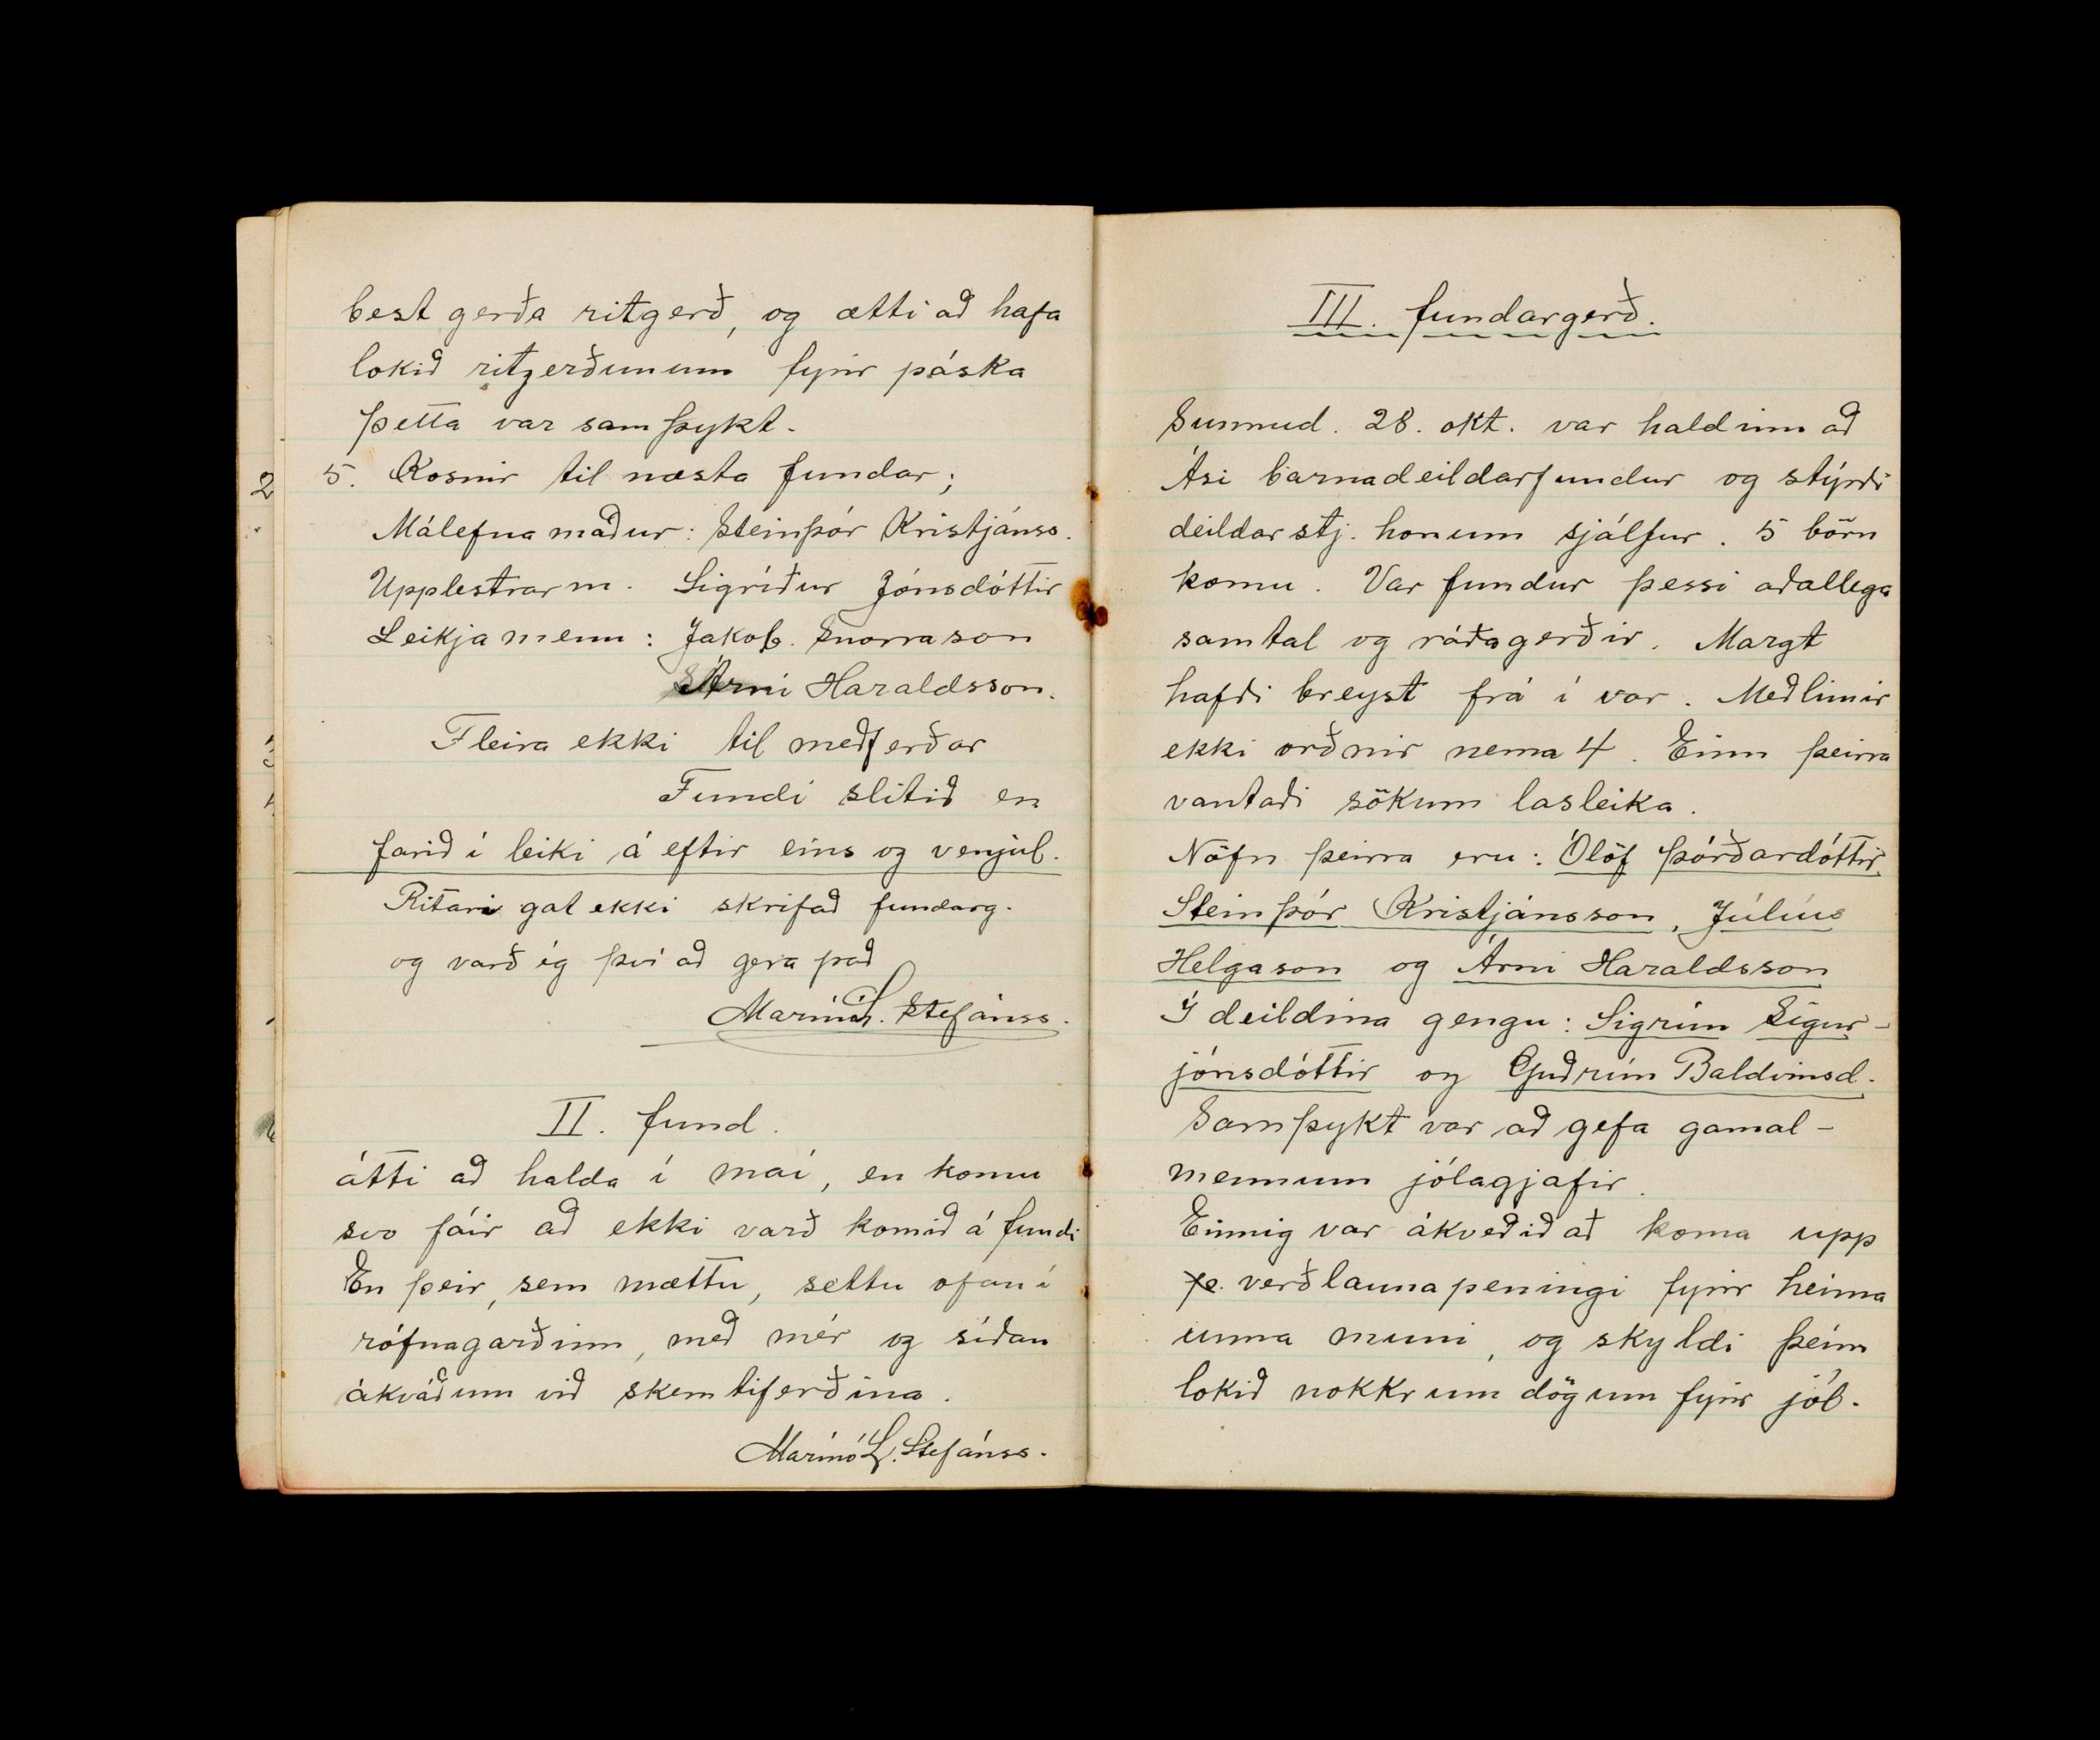 best gerða ritgerð, og ætti að hafa
lokið ritgerðunum fyrir páska
Þetta var samþykt.
5. Kosnir til næsta fundar;
Málefnamaður: Steinþór Kristjánss.
Upplestrarm. Sigríður Jónsdóttir
Leikjamenn: Jakob. Snorrason
Árni Haraldsson.
Fleira ekki til meðferðar
Fundi slitið en
farið í leiki á eftir eins og venjul.
Ritari gat ekki skrifað fundarg.
og varð ég því að gera það
Marinó L. Stefánss.
II. fund.
átti að halda í maí, en komu
svo fáir að ekki varð komið á fundi
En þeir, sem mættu, settu ofan í
rófnagarðinn, með mér og síðan
ákváðum við skemtiferðina.
Marinó L. Stefánss.
III. fundargerð.
Sunnud. 28. okt. var haldinn að
Ási barnadeildarfundur og stýrði
deildarstj. honum sjálfur. 5 börn
komu. Var fundur þessi aðallega
samtal og ráðagerðir. Margt
hafði breyst frá í vor. Meðlimir
ekki orðnir nema 4. Einn þeirra
vantaði sökum lasleika.
Nöfn þeirra eru: Ólöf Þórðardóttir,
Steinþór Kristjánsson, Júlíus
Helgason og Árni Haraldsson
Í deildina gengu: Sigrún Sigur-
jónsdóttir og Guðrún Baldvinsd.
Samþykt var að gefa gamal-
mennum jólagjafir.
Einnig var ákveðið að koma upp
verðlaunapeningi fyrir heima
unna muni, og skyldi þeim
lokið nokkrum dögum fyrir jól.